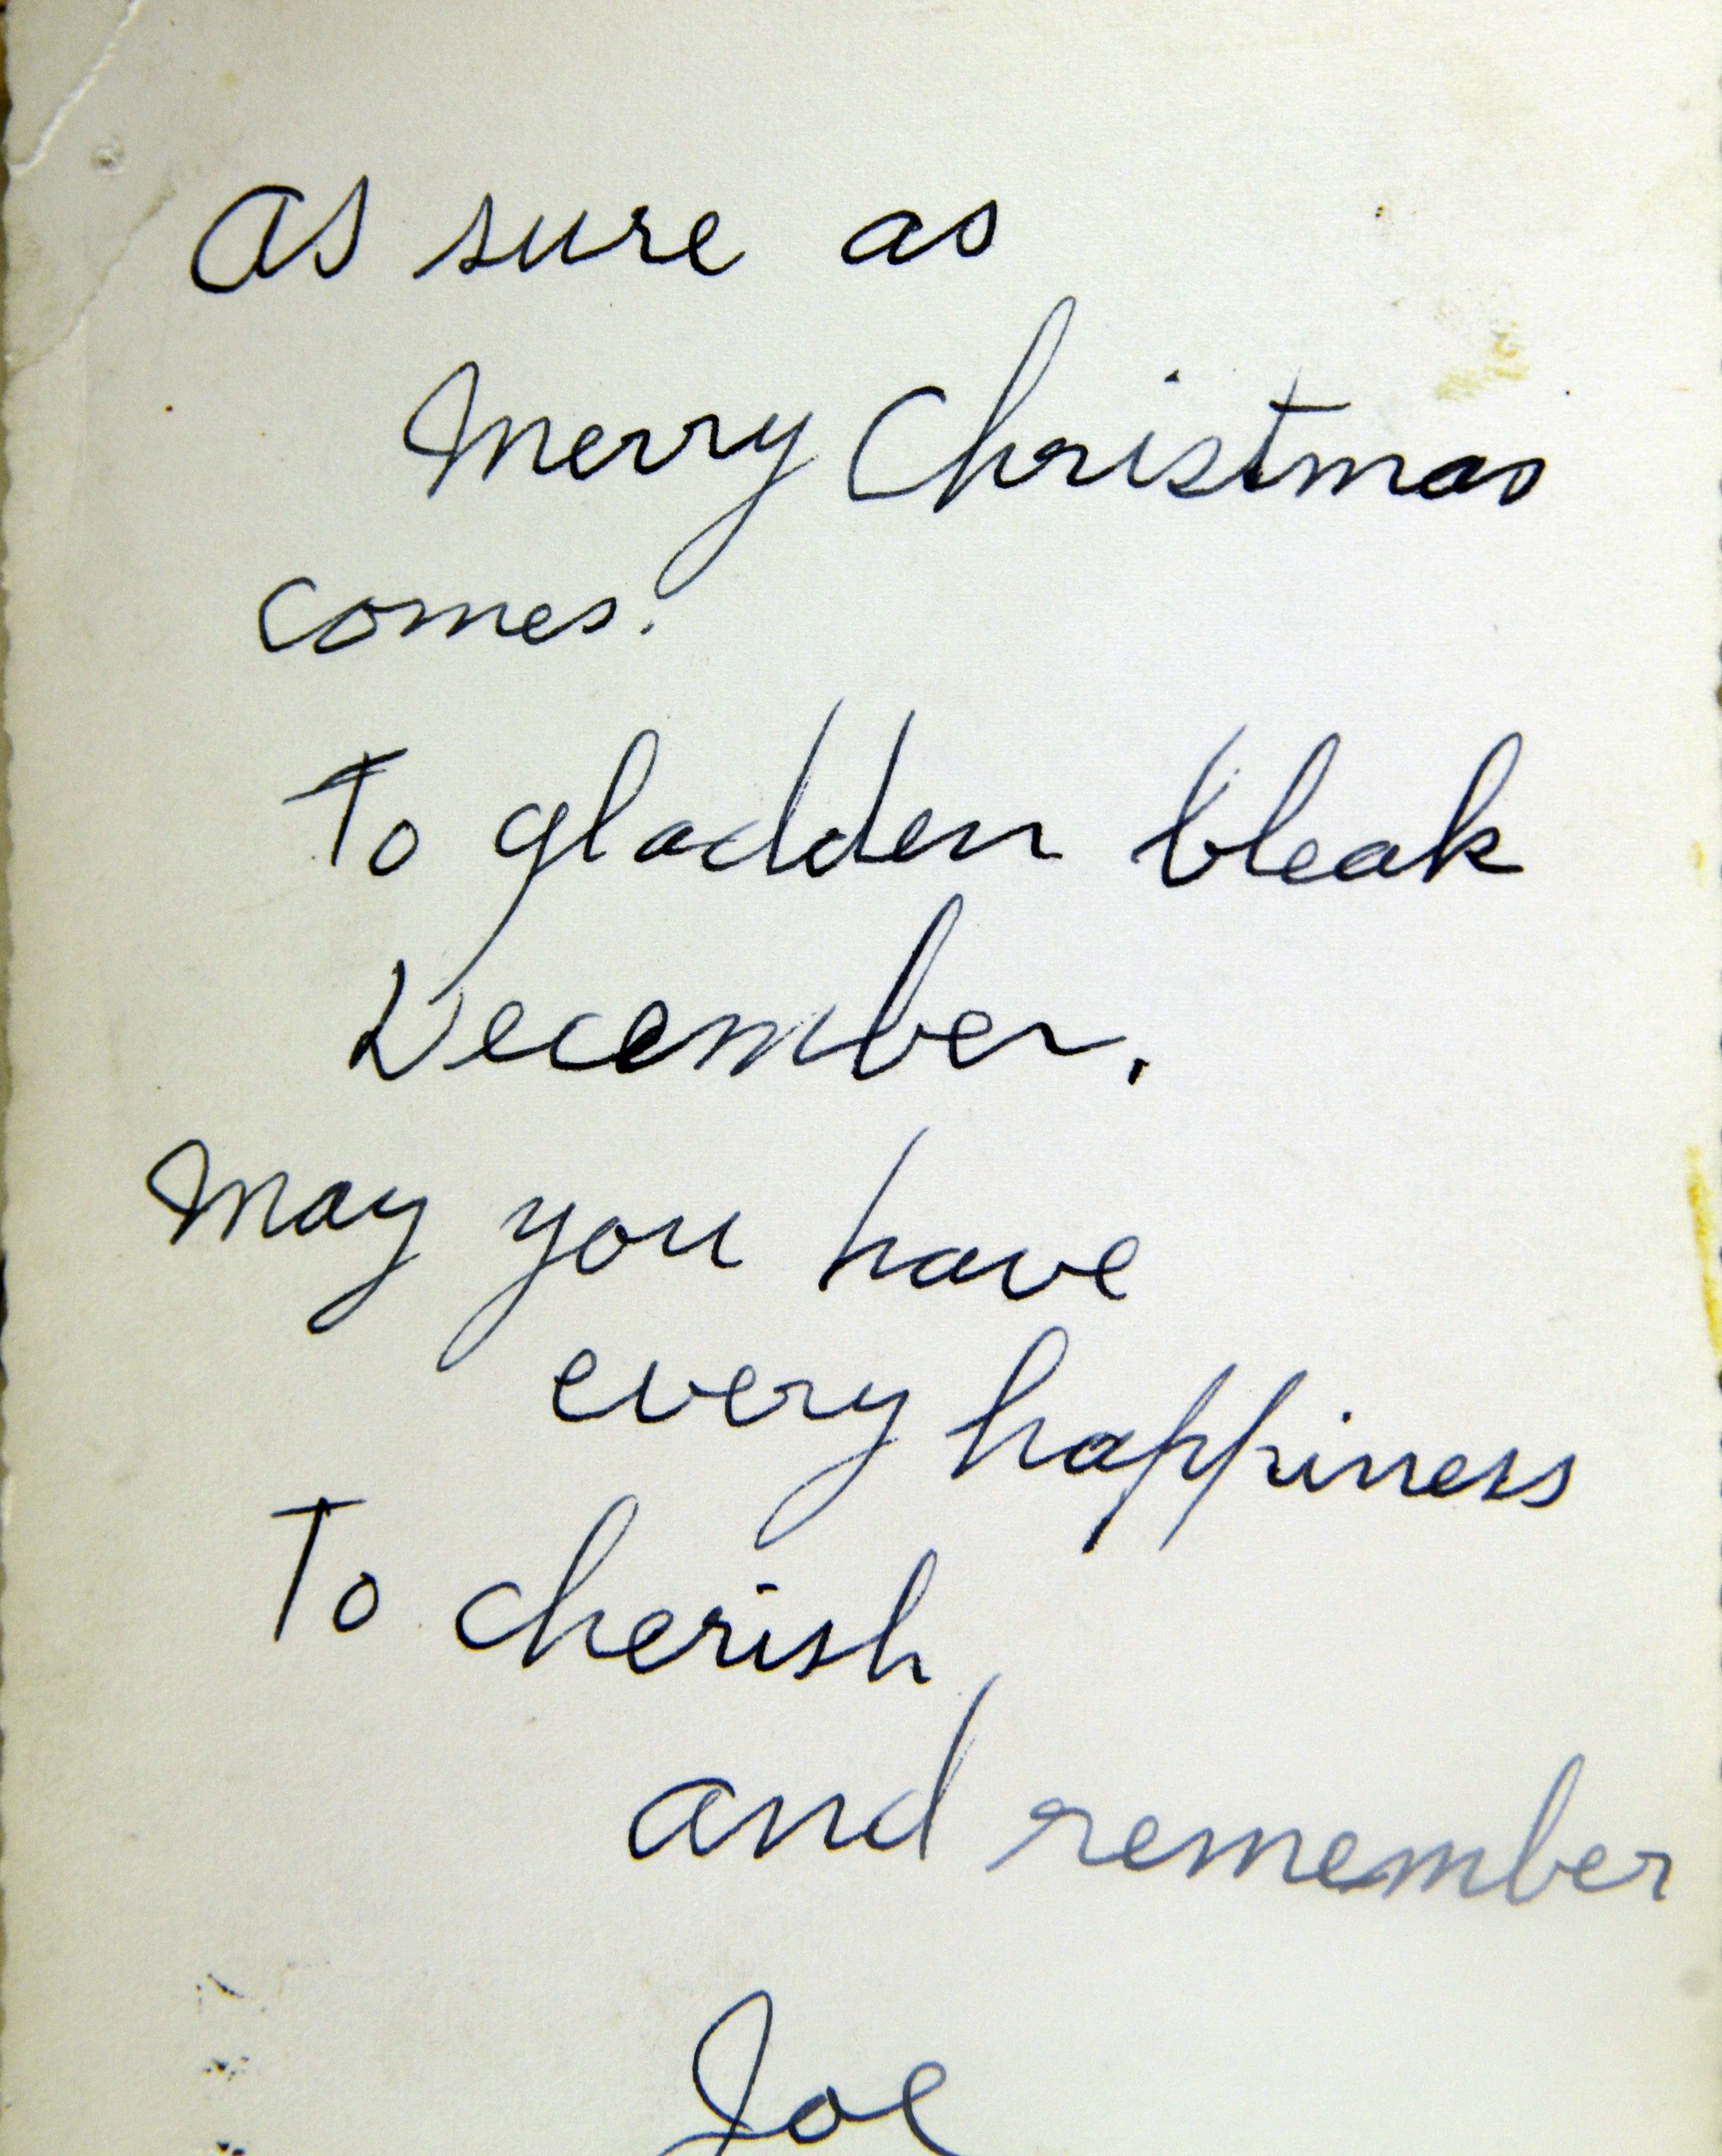 As sure as
Merry Christmas
comes.
To gladden bleak
December.
May you have
every happiness
To cherish
and remember
Joe